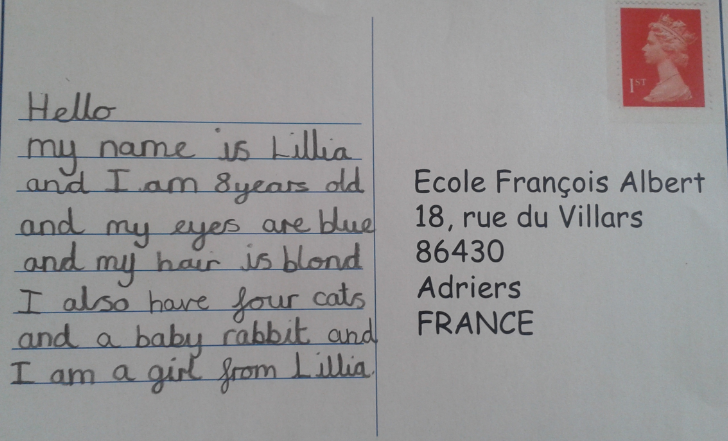 Hello
my name is Lillia
and I am 8 years old
and my eyes are blue
and my hair is blond
I also have four cats
and a baby rabbit and
I am a girl from Lillia.
1ST
Ecole François Albert
18, rue du Villars
86430
Adriers
FRANCE